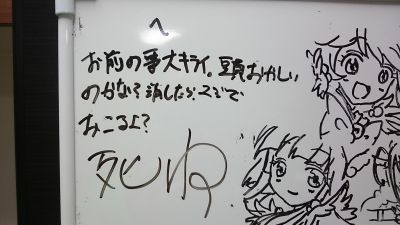 へ
お前の事大キライ。頭おかしい
のかな?消したら、マジで
おこるよ?
死ね